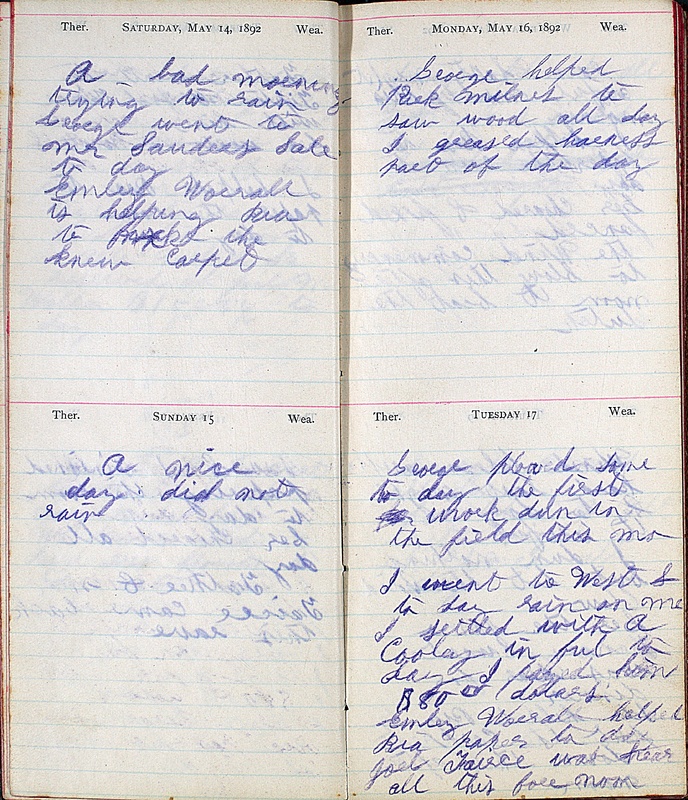 Ther. SATURDAY, MAY 14, 1892 Wea.
A bad morning
trying to rain
George went to
mr Sanders Sale
to day
Emley Worrall
is helping Ria
to make the
knew Carped
Ther. SUNDAY 15 Wea.
A nice
day did not
rain
Ther. MONDAY, MAY 16, 1892 Wea.
George helped
Milnes to
saw wood all day
I greased harness
part of the day
Ther. TUESDAY 17 Wea.
George plowd some
to day the first
work dun in
the field this mo
I went to West S
to day rain on me
I settled with A
Cooley in ful to
day I payed him
$80 00 dolars
Emley Worrall helped
Ria paper to day
Joel was hear
all this fore noon